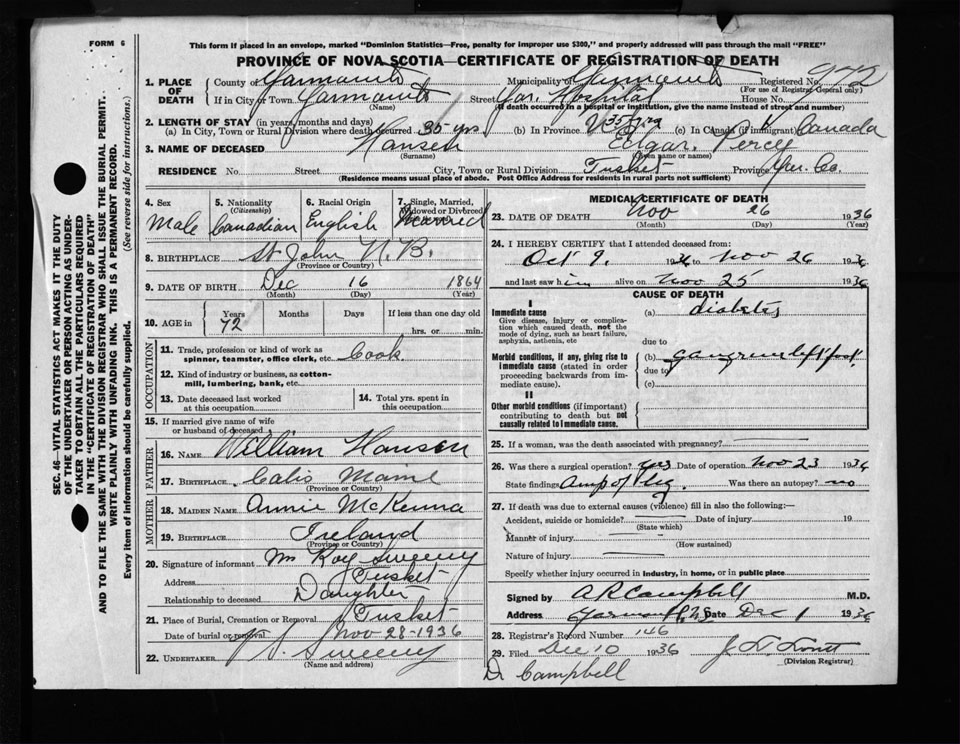 FORM 6
This form if placed in an envelope, marked "Dominion Statistics—Free, penalty for improper use $300," and properly addressed will pass through the mail "FREE"
PROVINCE OF NOVA SCOTIA—CERTIFICATE OF REGISTRATION OF DEATH
1. PLACE OF DEATH County of Yarmouth Municipality of Yarmouth Registered No. 972
(For use of Registrar General only)
If in City or Town Yarmouth Street Yar. Hospital House No.
(Name) (If death occurred in a hospital or institution, give the name instead of street and number)
2. LENGTH OF STAY (in years, months and days)
(a) In City, Town or Rural Division where death occurred 35 yrs (b) In Province 35 yrs (c) In Canada (if immigrant) Canada
3. NAME OF DECEASED Hansen Edgar Percy
(Surname) (Given name or names)
RESIDENCE No. Street City, Town or Rural Division Tusket Province Yar. Co.
(Residence means usual place of abode. Post Office Address for residents in rural parts not sufficient)
4. Sex 5. Nationality (Citizenship) 6. Racial Origin 7. Single, Married, Widowed or Divorced
Male Canadian English Married
8. BIRTHPLACE St John N.B.
(Province or Country)
9. DATE OF BIRTH Dec 16 1864
(Month) (Day) (Year)
10. AGE in Years Months Days If less than one day old
72 hrs. or min.
OCCUPATION
11. Trade, profession or kind of work as spinner, teamster, office clerk, etc. Cook
12. Kind of industry or business, as cotton-mill, lumbering, bank, etc.
13. Date deceased last worked at this occupation
14. Total yrs. spent in this occupation
15. If married give name of wife or husband of deceased
FATHER
16. NAME William Hansen
17. BIRTHPLACE Calis Maine
(Province or Country)
MOTHER
18. MAIDEN NAME Annie McKenna
19. BIRTHPLACE Ireland
(Province or Country)
20. Signature of informant Mrs Roy Sweeny
Address Tusket
Relationship to deceased Daughter
21. Place of Burial, Cremation or Removal Tusket
Date of burial or removal Nov 28-1936
22. UNDERTAKER Sweeny
(Name and address)
MEDICAL CERTIFICATE OF DEATH
23. DATE OF DEATH Nov 26 1936
(Month) (Day) (Year)
24. I HEREBY CERTIFY that I attended deceased from:
Oct 9. 1936 to Nov 26 1936
and last saw him alive on Nov 25 1936
CAUSE OF DEATH
I
Immediate cause (a) diabetes
Give disease, injury or complication which caused death, not the mode of dying, such as heart failure, asphyxia, asthenia, etc
due to
Morbid conditions, if any, giving rise to immediate cause (stated in order proceeding backwards from immediate cause).
(b) gangrene left foot
due to
(c)
II
Other morbid conditions (if important) contributing to death but not causally related to immediate cause.
25. If a woman, was the death associated with pregnancy?
26. Was there a surgical operation? yes Date of operation Nov 23 1936
State findings Amp of leg. Was there an autopsy? no
27. If death was due to external causes (violence) fill in also the following:—
Accident, suicide or homicide? Date of injury 19
(State which)
Manner of injury
(How sustained)
Nature of injury
Specify whether injury occurred in industry, in home, or in public place
Signed by A R Campbell M.D.
Address Yarmouth N.S. Date Dec 1 1936
28. Registrar's Record Number 146
29. Filed Dec 10 1936
(Division Registrar)
D. Campbell
SEC. 46—VITAL STATISTICS ACT MAKES IT THE DUTY
OF THE UNDERTAKER OR PERSON ACTING AS UNDER-
TAKER TO OBTAIN ALL THE PARTICULARS REQUIRED
IN THE "CERTIFICATE OF REGISTRATION OF DEATH"
AND TO FILE THE SAME WITH THE DIVISION REGISTRAR WHO SHALL ISSUE THE BURIAL PERMIT.
WRITE PLAINLY WITH UNFADING INK. THIS IS A PERMANENT RECORD.
Every item of information should be carefully supplied. (See reverse side for instructions.)